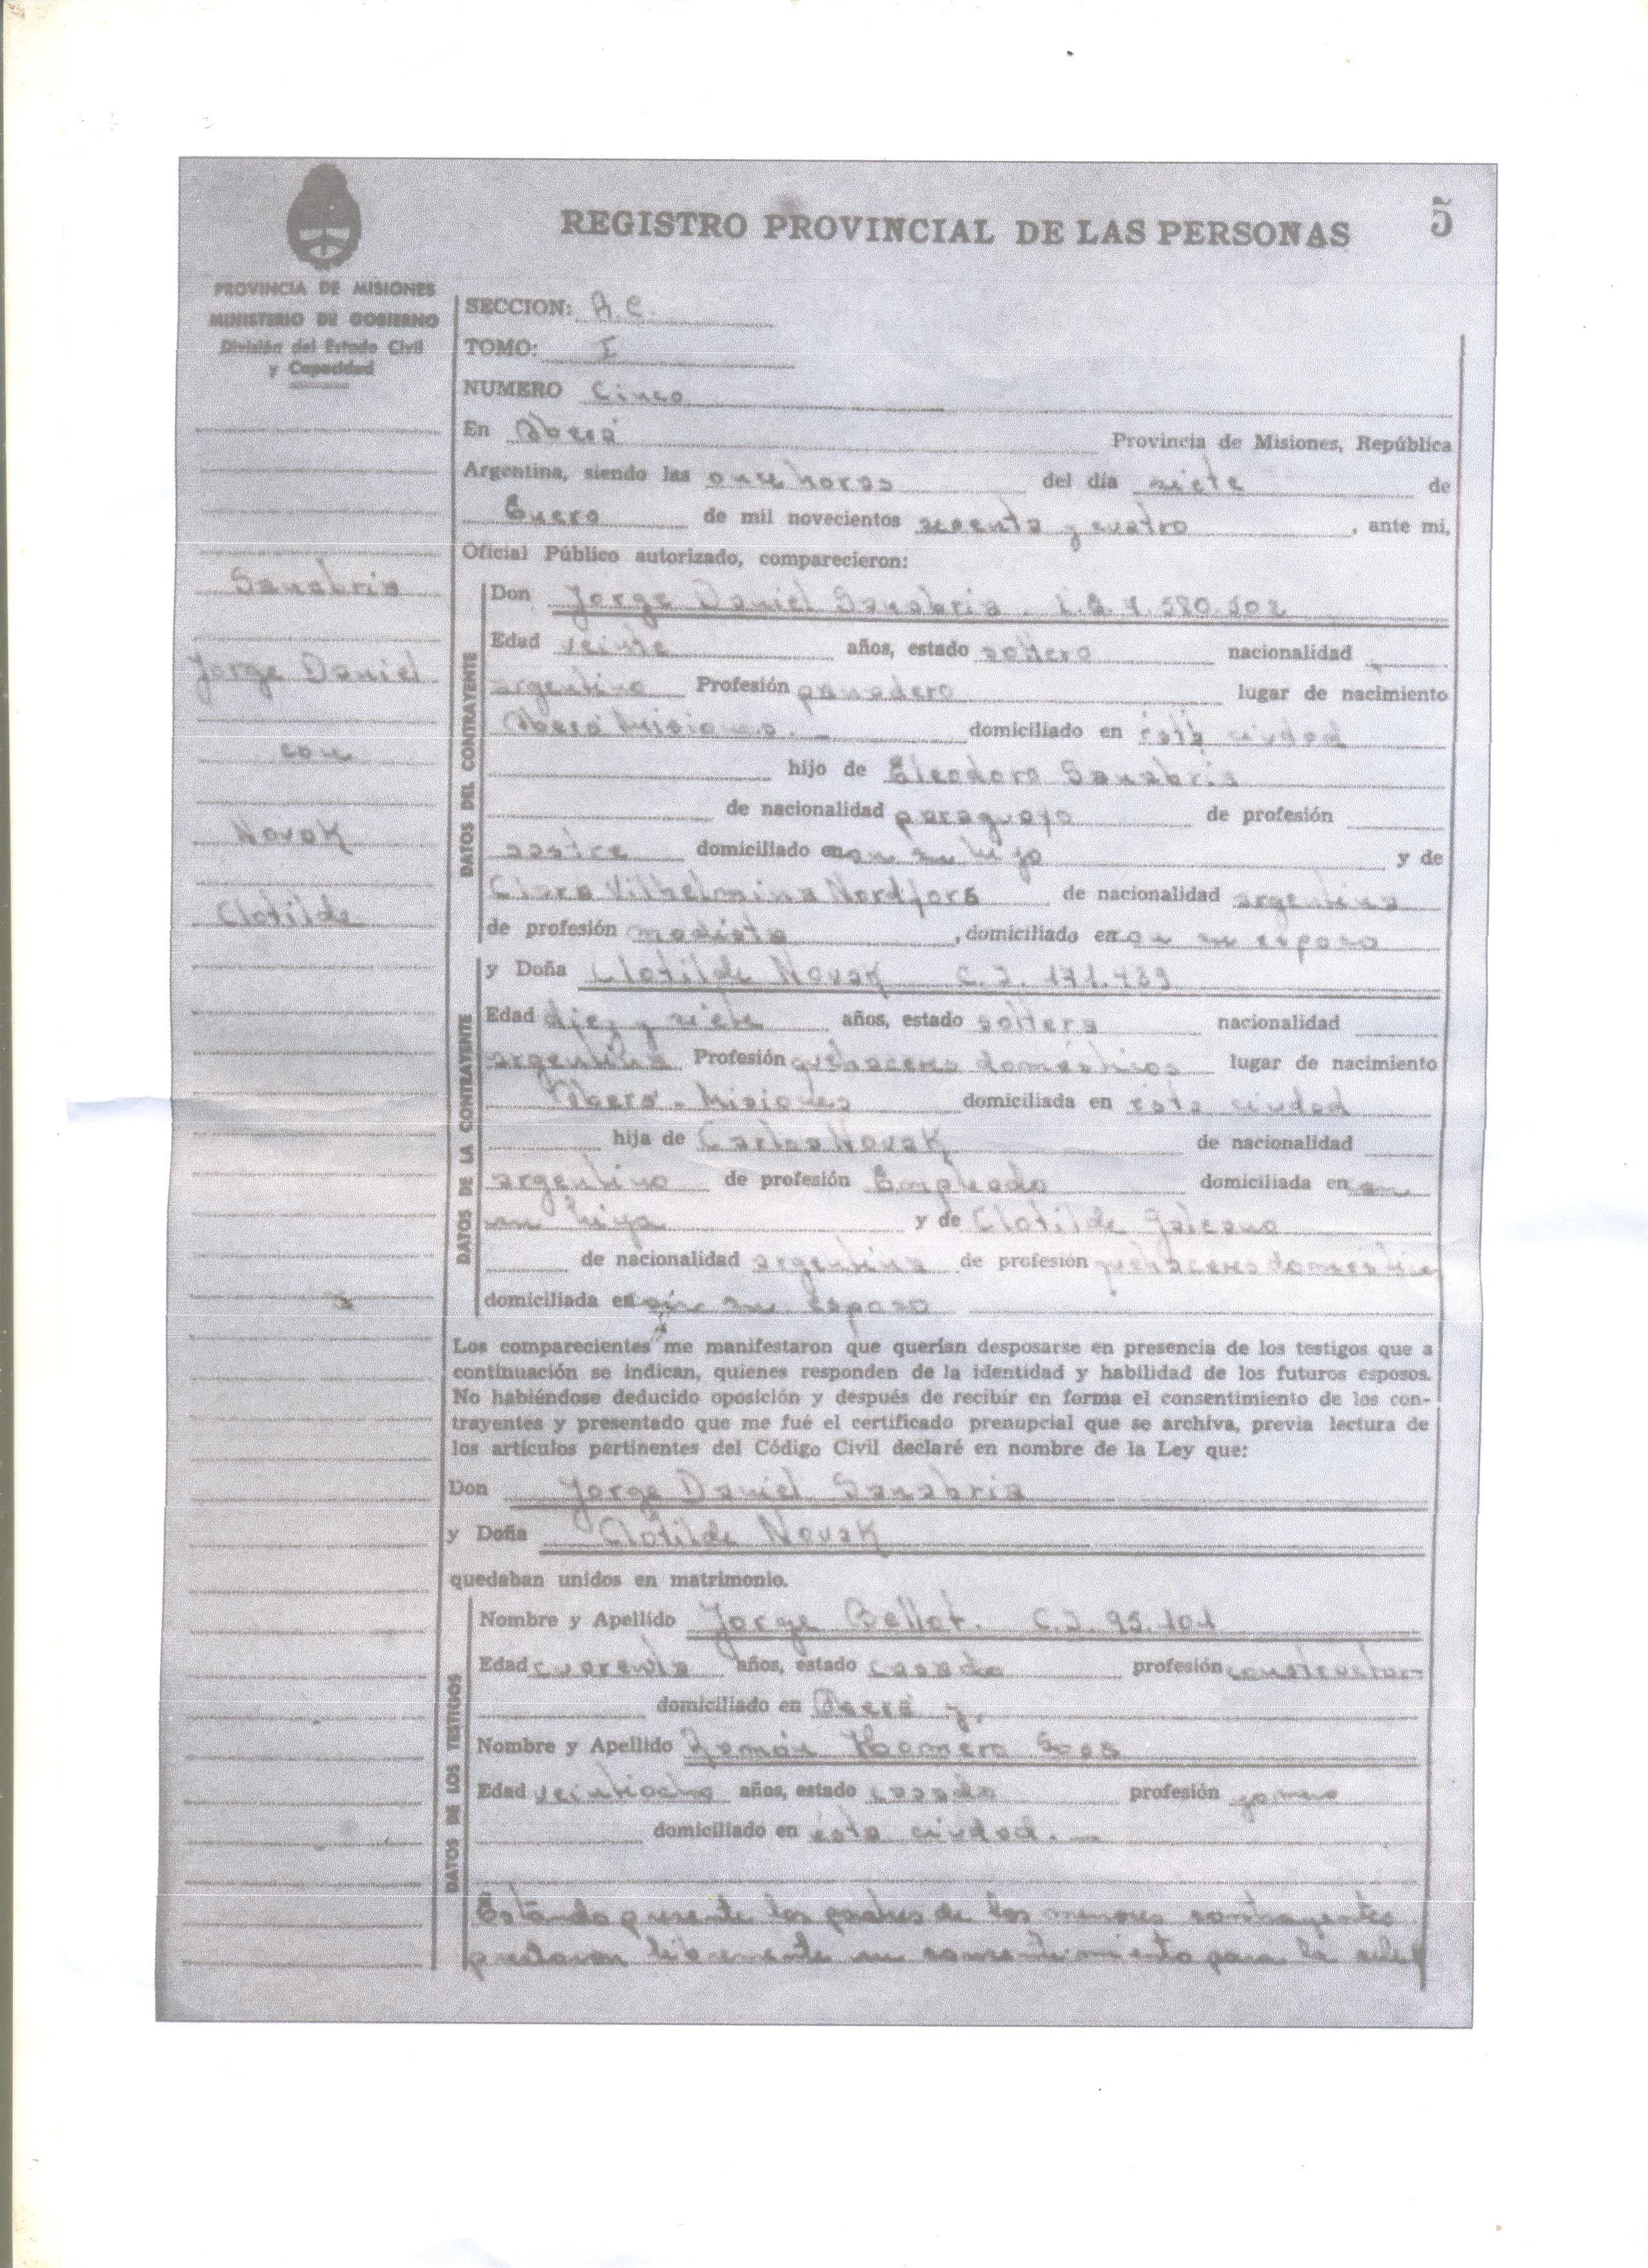 REGISTRO PROVINCIAL DE LAS PERSONAS
5
PROVINCIA DE MISIONES
MINISTERIO DE GOBIERNO
División del Estado Civil
y Capacidad
Sanabria
Jorge Daniel
con
Novak
Clotilde
SECCION: A.C.
TOMO: I
NUMERO Cinco
En Oberá Provincia de Misiones, República
Argentina, siendo las once horas del día siete de
Enero de mil novecientos y cuatro, ante mi,
Oficial Público autorizado, comparecieron:
DATOS DEL CONTRAYENTE
Don Jorge Daniel Sanabria
Edad veinte años, estado soltero nacionalidad
argentino Profesión panadero lugar de nacimiento
Oberá Misiones. domiciliado en ésta ciudad
hijo de Eleodoro Sanabria
de nacionalidad paraguayo de profesión
sastre domiciliado en con su hijo y de
Clara Vilhelmina Nordfors de nacionalidad argentina
de profesión modista, domiciliado en con su esposo
DATOS DE LA CONTRAYENTE
y Doña Clotilde Novak C.I.
Edad diez y siete años, estado soltera nacionalidad
argentina Profesión quehaceres domésticos lugar de nacimiento
Oberá - Misiones domiciliada en ésta ciudad
hija de Carlos Novak de nacionalidad
argentino de profesión Empleado domiciliada en con
su hija y de Clotilde Galeano
de nacionalidad argentina de profesión quehaceres
domiciliada en con su esposo
Los comparecientes me manifestaron que querían desposarse en presencia de los testigos que a
continuación se indican, quienes responden de la identidad y habilidad de los futuros esposos.
No habiéndose deducido oposición y después de recibir en forma el consentimiento de los con-
trayentes y presentado que me fué el certificado prenupcial que se archiva, previa lectura de
los artículos pertinentes del Código Civil declaré en nombre de la Ley que:
Don Jorge Daniel Sanabria
y Doña Clotilde Novak
quedaban unidos en matrimonio.
DATOS DE LOS TESTIGOS
Nombre y Apellido Jorge Bellot. C.I. 95.101
Edad cuarenta años, estado casado profesión constructor
domiciliado en Oberá y.
Nombre y Apellido Homero
Edad veintiocho años, estado casado profesión
domiciliado en ésta ciudad.
Estando presente los padres de los menores contrayentes
prestaron libremente su consentimiento para la